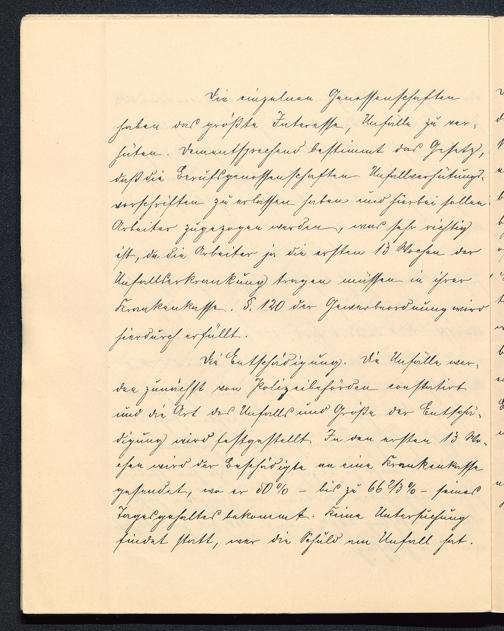 Die einzelnen Genossenschaften
haben das größte Interesse, Unfälle zu ver-
hüten. Dementsprechend bestimmt das Gesetz,
daß die Berufsgenossenschaften Unfallverhütungs-
vorschriften zu erlassen haben und hierbei sollen
Arbeiter zugezogen werden, was sehr richtig
ist, da die Arbeiter ja die ersten 13 Wochen der
Unfallserkrankung tragen müssen in ihrer
Krankenkasse. §. 120 der Gewerbeordnung wird
hierdurch erfüllt.
Die Entschädigung. Die Unfälle wer-
den zunächst von Polizeibehörden constatirt
und die Art des Unfalls und Größe der Entschä-
digung wird festgestellt. In den ersten 13 Wo-
chen wird der Beschädigte an eine Krankenkasse
gesendet, wo er 50% - bis zu 66 2/3% - seines
Tagesgehaltes bekommt. Keine Untersuchung
findet statt, wer die Schuld am Unfall hat.